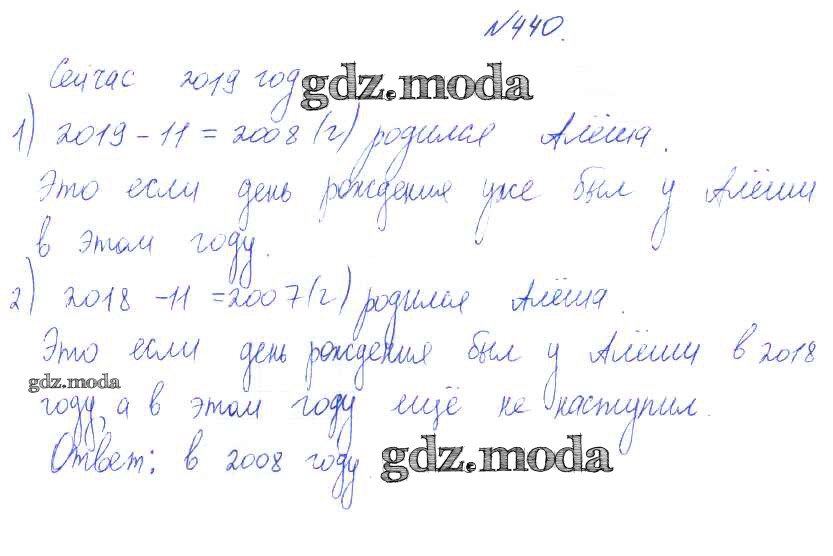 №440.
Сейчас 2019 год gdz.moda
1) 2019 - 11 = 2008 (г) родился Алёша.
Это если день рождения уже был у Алёши
в этом году.
2) 2018 - 11 = 2007 (г) родился Алёша.
Это если день рождения был у Алёши в 2018
gdz.moda
году, а в этом году ещё не наступил.
Ответ: в 2008 году. gdz.moda